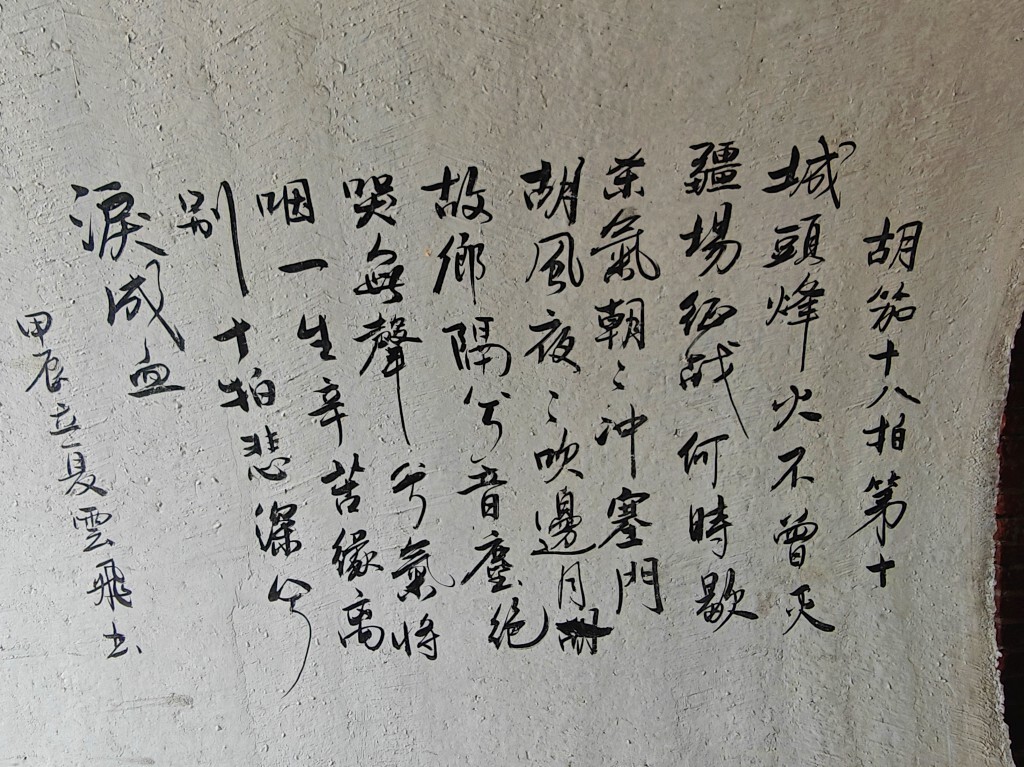 胡笳十八拍第十
城頭烽火不曾灭
疆場征战何時歇
杀氣朝〻冲塞門
胡風夜〻吹邊月
故鄉隔兮音塵絕
哭無聲兮氣將
咽一生辛苦緣离
别十拍悲深兮
淚成血
甲辰立夏雲飛书